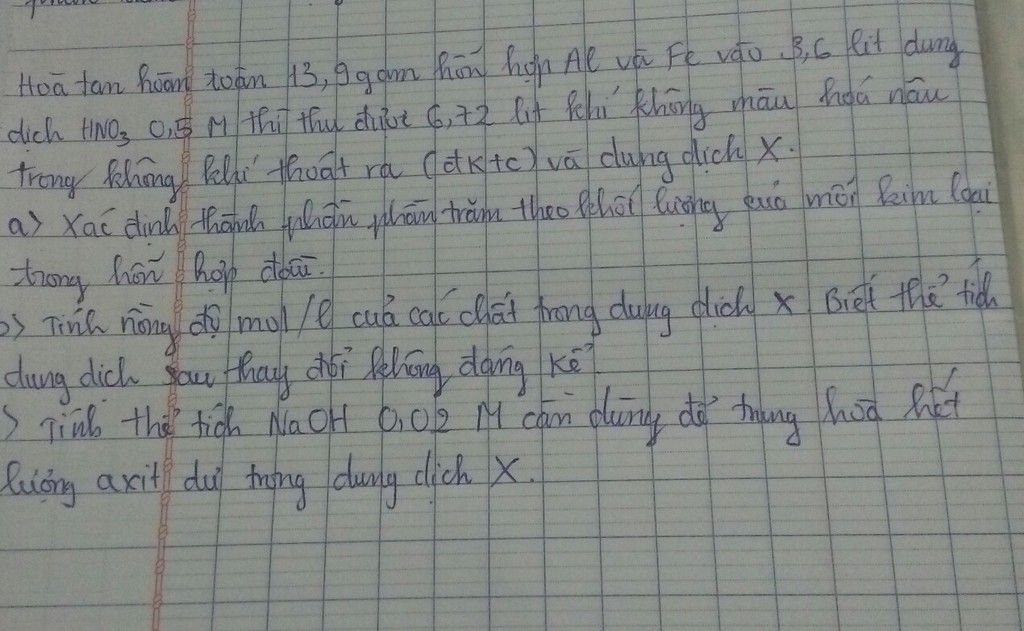 Hoà tan hoàn toàn 13,9 gam hỗn hợp Al và Fe vào 3,6 lit dung
dịch HNO3 0,5 M thì thu được 6,72 lit khí không màu hoá nâu
trong không khí thoát ra (đk+c) và dung dịch X.
a> Xác định thành phần phần trăm theo khối lượng quả mỗi kim loại
trong hỗn hợp đầu.
b> Tính nồng độ mol/l của các chất trong dung dịch X Biết thể tích
dung dịch sau thay đổi không đáng kể
> Tính thể tích NaOH 0,02 M cần dùng để trung hoà hết
lượng axit dư trong dung dịch X.